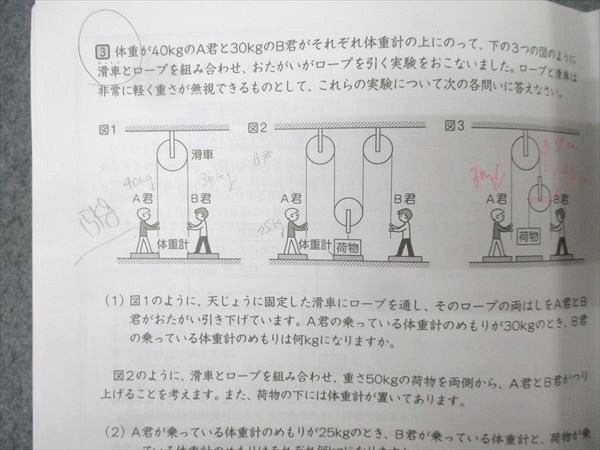 3 体重が40kgのA君と30kgのB君がそれぞれ体重計の上にのって、下の3つの図のように
滑車とロープを組み合わせ、おたがいがロープを引く実験をおこないました。ロープと滑車は
非常に軽く重さが無視できるものとして、これらの実験について次の各問いに答えなさい。
図1 図2 図3
滑車
B君
40kg 30kg
A君 B君 A君 B君 A君 B君
25kg
体重計 体重計 荷物 荷物
(1) 図1のように、天じょうに固定した滑車にロープを通し、そのロープの両はしをA君とB
君がおたがい引き下げています。A君の乗っている体重計のめもりが30kgのとき、B君
の乗っている体重計のめもりは何kgになりますか。
図2のように、滑車とロープを組み合わせ、重さ50kgの荷物を両側から、A君とB君がつり
上げることを考えます。また、荷物の下には体重計が置いてあります。
(2) A君が乗っている体重計のめもりが25kgのとき、B君が乗っている体重計と、荷物が乗
っている体重計のめもりはそれぞれ何kgになりますか